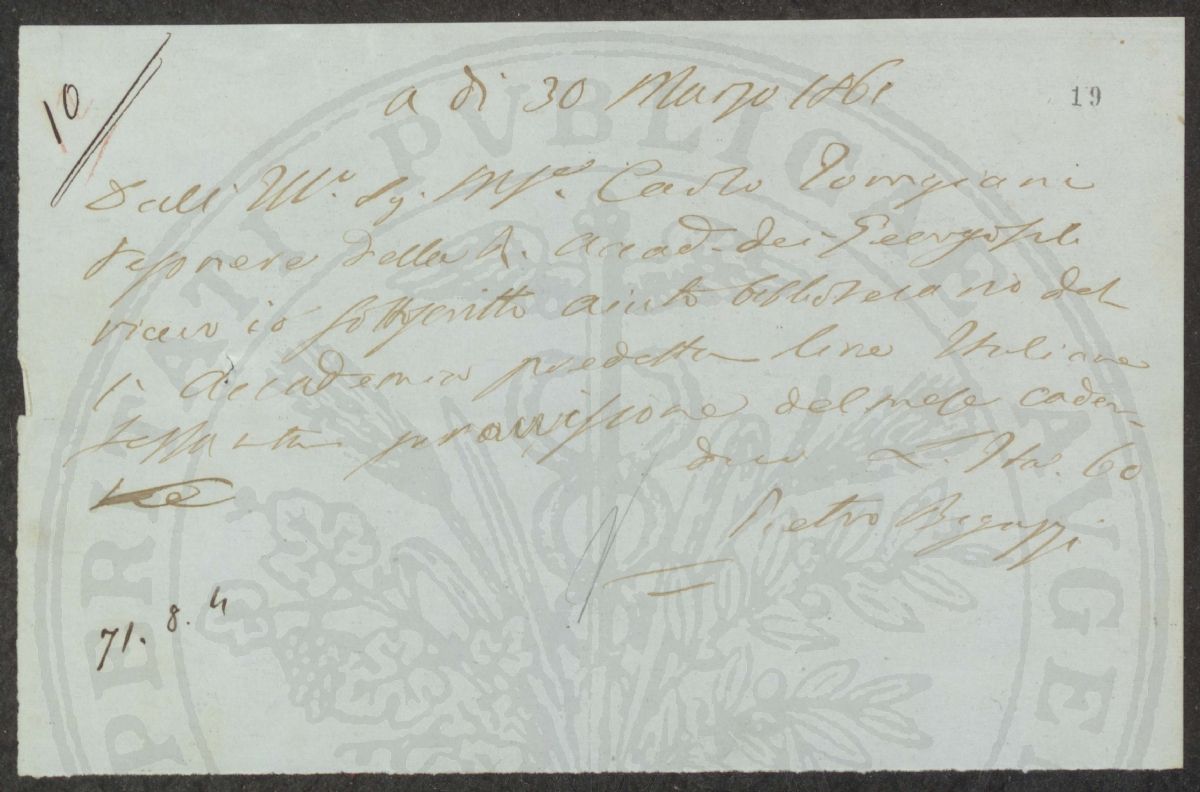 10
19
a dì 30 Marzo 1861
Dall Ill.º Sg. Carlo Torrigiani
Tesoriere della R. Accad. dei Georgofili
ricevo io sottoscritto aiuto bibliotecario del
l' Accademia predetta lire Italiane
sessanta provvisione del mese caden-
te
dico L. Ita. 60
Pietro Bigazzi
71. 8. 4
PROSPERITATI PVBLICAE AVGE